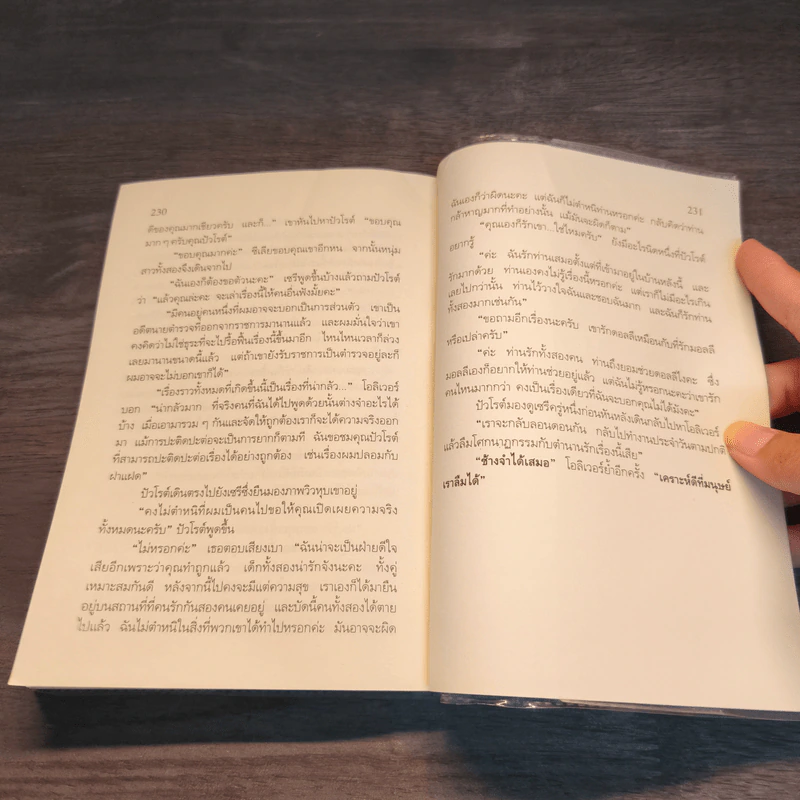 230
ดีของคุณมากเชียวครับ และก็...” เขาหันไปหาปัวโรต์ “ขอบคุณ
มากๆ ครับคุณปัวโรต์”
“ขอบคุณมากค่ะ” ซีเลียขอบคุณเขาอีกหน จากนั้นหนุ่ม
สาวทั้งสองจึงเดินจากไป
“ฉันเองก็ต้องขอตัวนะคะ” เซรีพูดขึ้นบ้างแล้วถามปัวโรต์
ว่า “แล้วคุณล่ะคะ จะเล่าเรื่องนี้ให้คนอื่นฟังมั้ยคะ”
“มีคนอยู่คนหนึ่งที่ผมอาจจะบอกเป็นการส่วนตัว เขาเป็น
อดีตนายตำรวจที่ออกจากราชการมานานแล้ว และผมมั่นใจว่าเขา
คงคิดว่าไม่ใช่ธุระที่จะไปรื้อฟื้นเรื่องนี้ขึ้นมาอีก ไหนไหนเวลาก็ล่วง
เลยมานานขนาดนี้แล้ว แต่ถ้าเขายังรับราชการเป็นตำรวจอยู่ละก็
ผมอาจจะไม่บอกเขาก็ได้”
“เรื่องราวทั้งหมดที่เกิดขึ้นนี้เป็นเรื่องที่น่ากลัว...” โอลิเวอร์
บอก “น่ากลัวมาก ที่จริงคนที่ฉันได้ไปพูดด้วยนั้นต่างจำอะไรได้
บ้าง เมื่อเอามารวมๆ กันและจัดให้ถูกต้องเราก็จะได้ความจริงออก
มา แม้การปะติดปะต่อจะเป็นการยากก็ตามที ฉันขอชมคุณปัวโรต์
ที่สามารถปะติดปะต่อเรื่องได้อย่างถูกต้อง เช่นเรื่องผมปลอมกับ
ฝาแฝด”
ปัวโรต์เดินตรงไปยังเซรีซึ่งยืนมองภาพวิวหุบเขาอยู่
“คงไม่ตำหนิที่ผมเป็นคนไปขอให้คุณเปิดเผยความจริง
ทั้งหมดนะครับ” ปัวโรต์พูดขึ้น
“ไม่หรอกค่ะ” เธอตอบเสียงเบา “ฉันน่าจะเป็นฝ่ายดีใจ
เสียอีกเพราะว่าคุณทำถูกแล้ว เด็กทั้งสองน่ารักจังนะคะ ทั้งคู่
เหมาะสมกันดี หลังจากนี้ไปคงจะมีแต่ความสุข เราเองก็ได้มายืน
อยู่บนสถานที่ที่คนรักกันสองคนเคยอยู่ และบัดนี้คนทั้งสองได้ตาย
ไปแล้ว ฉันไม่ตำหนิในสิ่งที่พวกเขาได้ทำไปหรอกค่ะ มันอาจจะผิด
231
ฉันเองก็ว่าผิดนะคะ แต่ฉันก็ไม่ตำหนิท่านหรอกค่ะ กลับคิดว่าท่าน
กล้าหาญมากที่ทำอย่างนั้น แม้มันจะผิดก็ตาม”
“คุณเองก็รักเขา...ใช่ไหมครับ” ยังมีอะไรนิดหนึ่งที่ปัวโรต์
อยากรู้
“ค่ะ ฉันรักท่านเสมอตั้งแต่ที่เข้ามาอยู่ในบ้านหลังนี้ และ
รักมากด้วย ท่านเองคงไม่รู้เรื่องนี้หรอกค่ะ แต่เราก็ไม่มีอะไรเกิน
เลยไปกว่านั้น ท่านไว้วางใจฉันและชอบฉันมาก และฉันก็รักท่าน
ทั้งสองมากเช่นกัน”
“ขอถามอีกเรื่องนะครับ เขารักดอลลีเหมือนกับที่รักมอลลี
หรือเปล่าครับ”
“ค่ะ ท่านรักทั้งสองคน ท่านถึงยอมช่วยดอลลีไงคะ ซึ่ง
มอลลีเองก็อยากให้ท่านช่วยอยู่แล้ว แต่ฉันไม่รู้หรอกนะคะว่าเขารัก
คนไหนมากกว่า คงเป็นเรื่องเดียวที่ฉันจะบอกคุณไม่ได้มังคะ”
ปัวโรต์มองดูเซรีครู่หนึ่งก่อนหันหลังเดินกลับไปหาโอลิเวอร์
“เราจะกลับลอนดอนกัน กลับไปทำงานประจำวันตามปกติ
แล้วลืมโศกนาฏกรรมกับตำนานรักเรื่องนี้เสีย”
“ช้างจำได้เสมอ” โอลิเวอร์ย้ำอีกครั้ง “เคราะห์ดีที่มนุษย์
เราลืมได้”